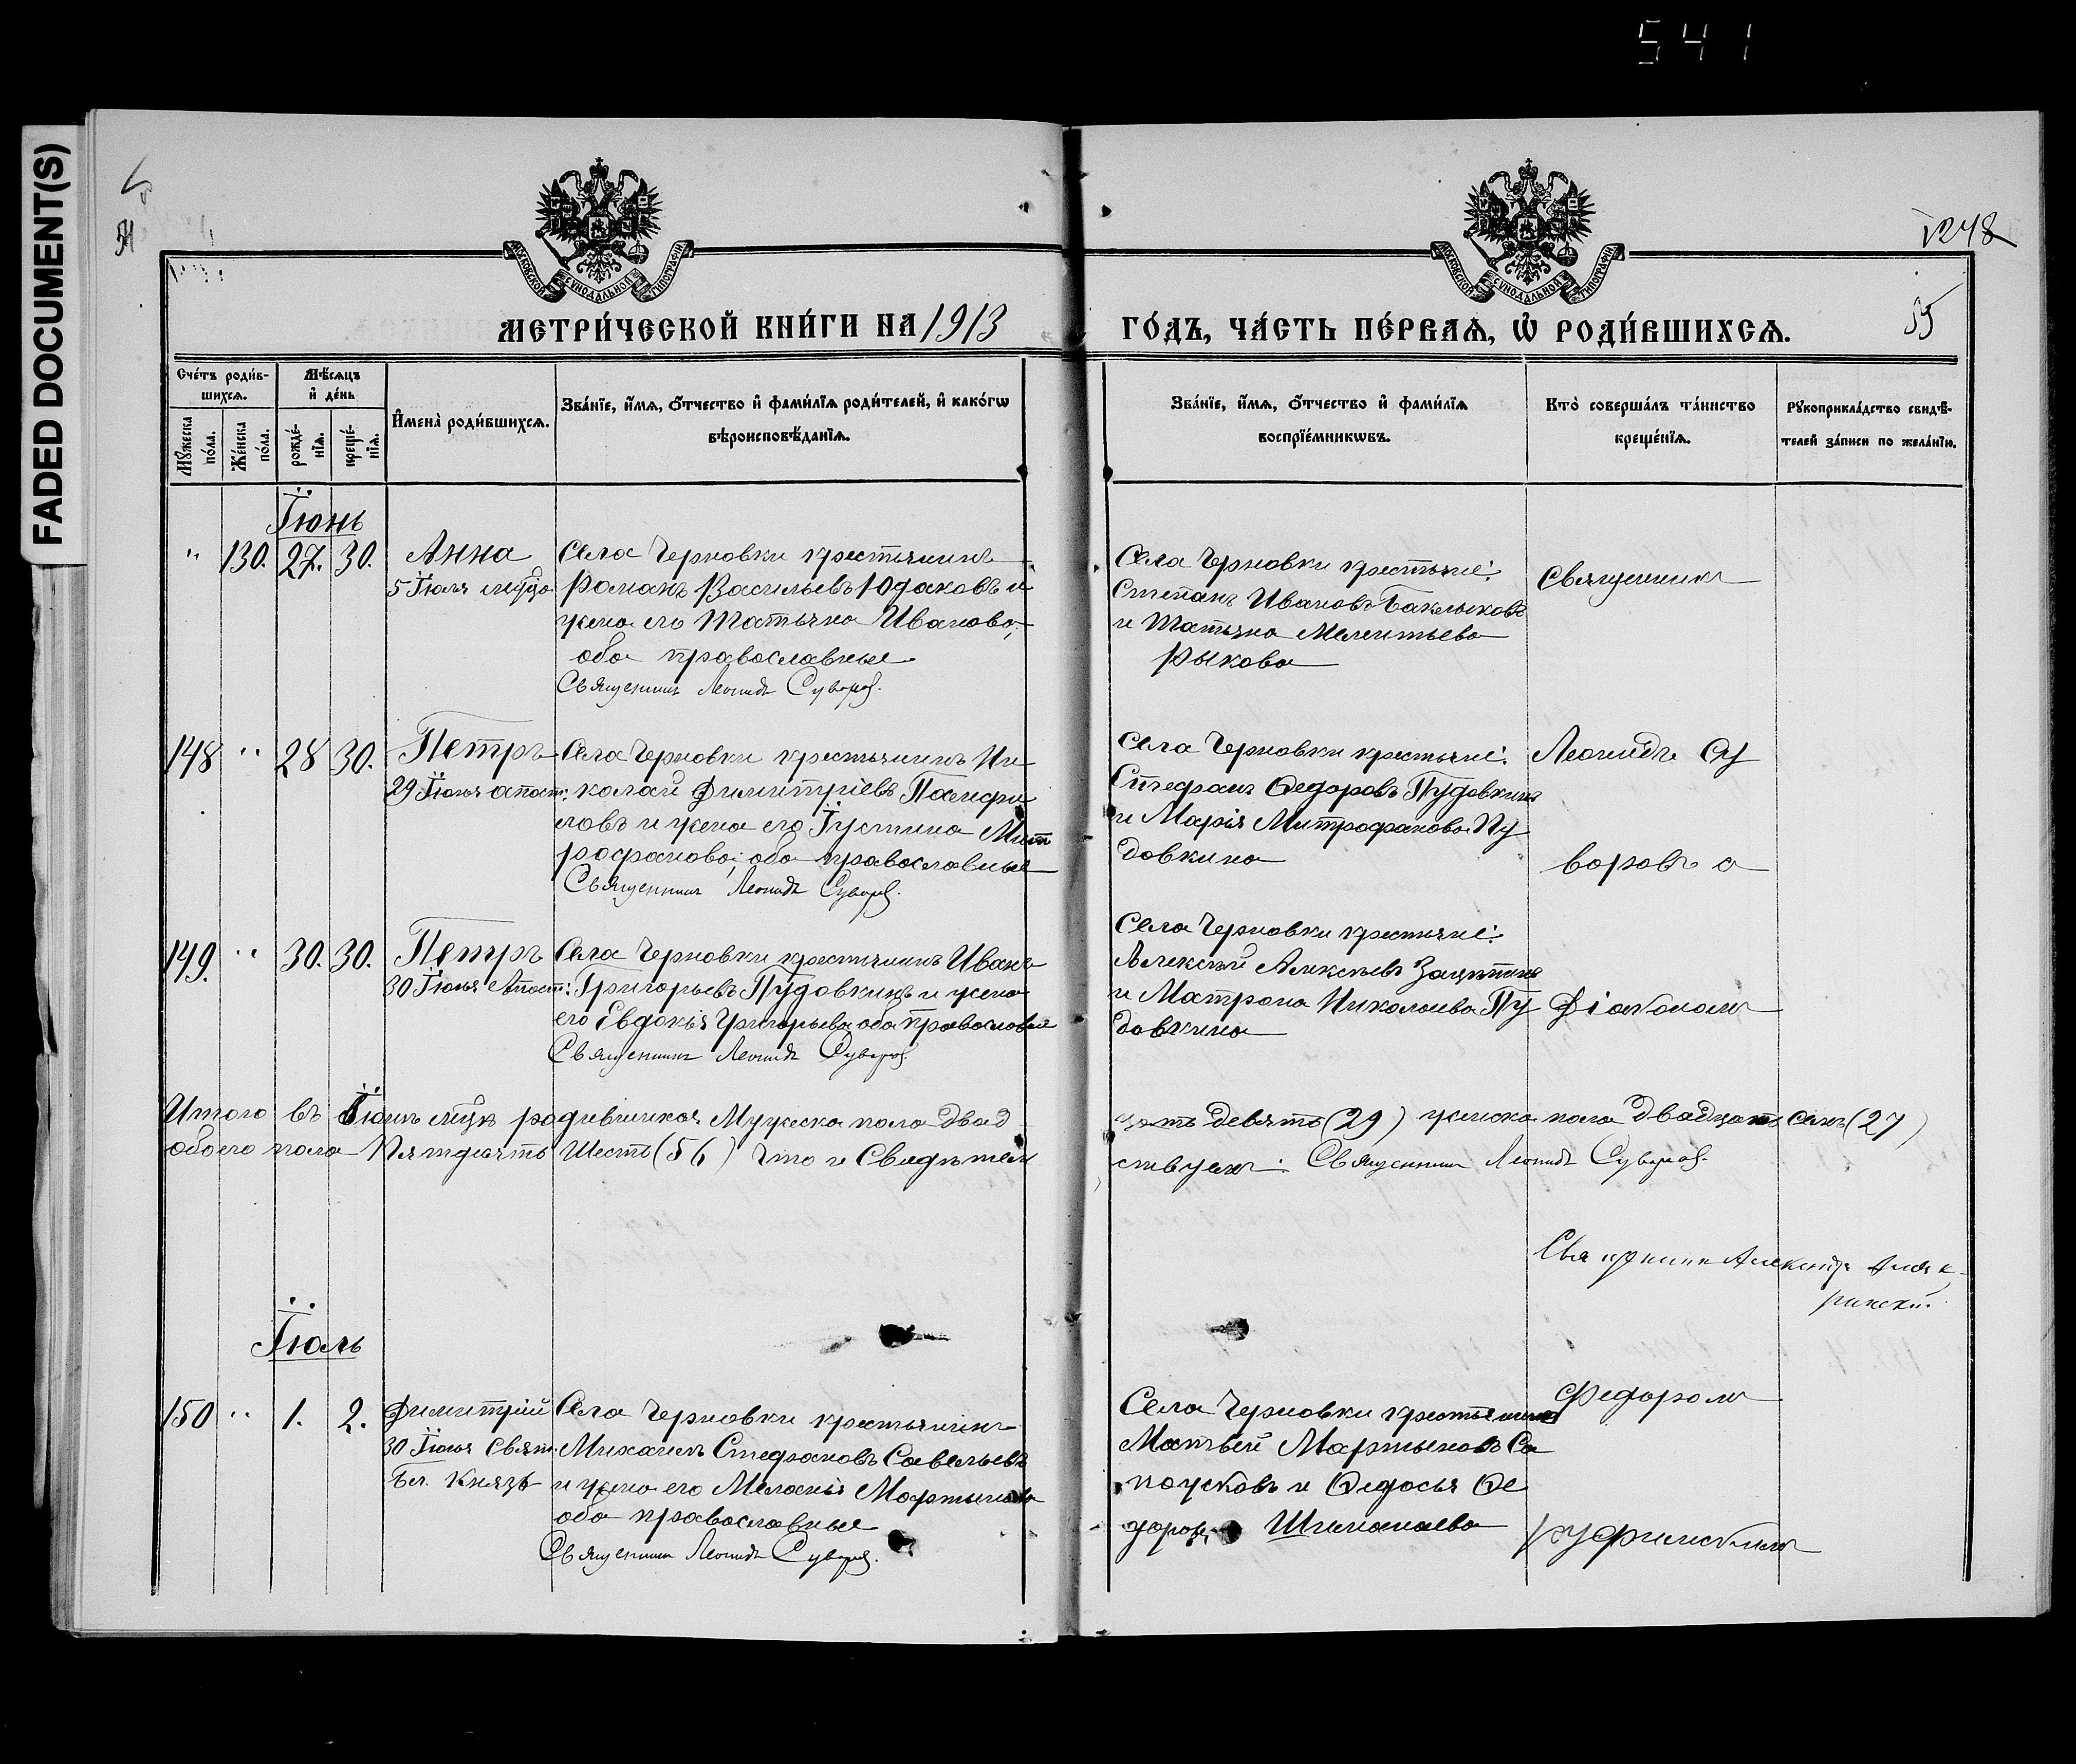 541
FADED DOCUMENT(S)
54
1248
55
МОСКОВСКОЙ СѴНОДАЛЬНОЙ ТИПОГРАФІИ
МОСКОВСКОЙ СѴНОДАЛЬНОЙ ТИПОГРАФІИ
МЕТРИ́ЧЕСКОЙ КНИ́ГИ НА 1913
ГО́ДЪ, ЧА́СТЬ ПЕ́РВАѦ, Ѡ҆ РОДИ́ВШИХСѦ.
Сче́тъ роди́в-
шихсѧ.
Мѣ́сѧцъ
и҆ де́нь
Мꙋ́жеска
по́ла.
Же́нска
по́ла.
рожде́-
нїѧ.
креще́-
нїѧ.
И҆мена̀ роди́вшихсѧ.
Зва́нїе, и҆́мѧ, ѻ҆́тчество и҆ фами́лїѧ роди́телей, и҆ како́гѡ
вѣроисповѣ́данїѧ.
Зва́нїе, и҆́мѧ, ѻ҆́тчество и҆ фами́лїѧ
воспрїе́мникѡвъ.
Кто̀ соверша́лъ та́инство
креще́нїѧ.
Рꙋкоприкла́дство свидѣ́-
телей за́писи по жела́нїю.
Іюнь
" 130. 27. 30. Анна
5 Іюля
Села Черновки крестьянинъ
Романъ Васильевъ Юдаковъ и
жена его Татьяна Иванова,
оба православные
Священникъ Леонидъ Суворов.
Села Черновки крестьяне:
Степанъ Ивановъ Баклыковъ
и Татьяна Мелентьева
Рыкова
Священникъ
148 " 28 30. Петръ
29 Іюня апост:
Села Черновки крестьянинъ Ни
колай Димитріевъ Памфи
ловъ и жена его Іустина Мит
рофанова; оба православные
Священникъ Леонидъ Суворов.
Села Черновки крестьяне:
Стефанъ Ѳедоровъ Пудовкинъ
и Марія Митрофанова Пу
довкина
Леонидъ Су
воровъ с
149. " 30. 30. Петръ
30 Іюня Апост:
Села Черновки крестьянинъ Иванъ
Григорьевъ Пудовкинъ и жена
его Евдокія Григорьева оба православные
Священникъ Леонидъ Суворов.
Села Черновки крестьяне:
Алексѣй Алексѣевъ Зацепинъ
и Матрона Николаева Пу
довкина
Діакономъ
Итого въ Іюнѣ мцѣ родившихся Мужеска пола двад
цать девять (29) женска пола двадцать семь (27)
обоего пола Пятдесятъ Шесть (56) Что и Свидѣтель
ствуемъ: Священникъ Леонидъ Суворов.
Священникъ Александръ
Іюль
150 " 1. 2. Димитрій
30 Іюня Свят.
Бл. Князь
Села Черновки крестьянинъ
Михаилъ Стефановъ Савельевъ
и жена его Меланія Мартынова
оба православные
Священникъ Леонидъ Суворов.
Села Черновки крестьяне
Матвѣй Мартыновъ Са
поусковъ и Ѳедосья Ѳе
дорова Шиманаева
Федоромъ
Руфимскимъ